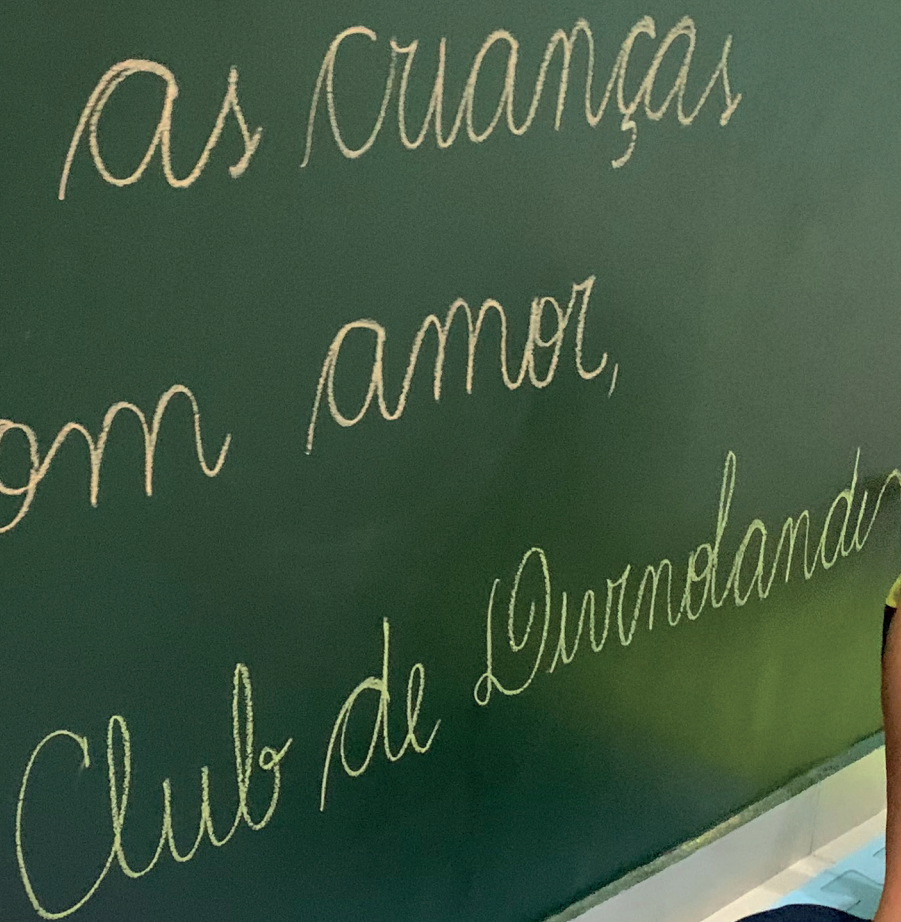 as crianças
om amor,
Club de Divinolandi